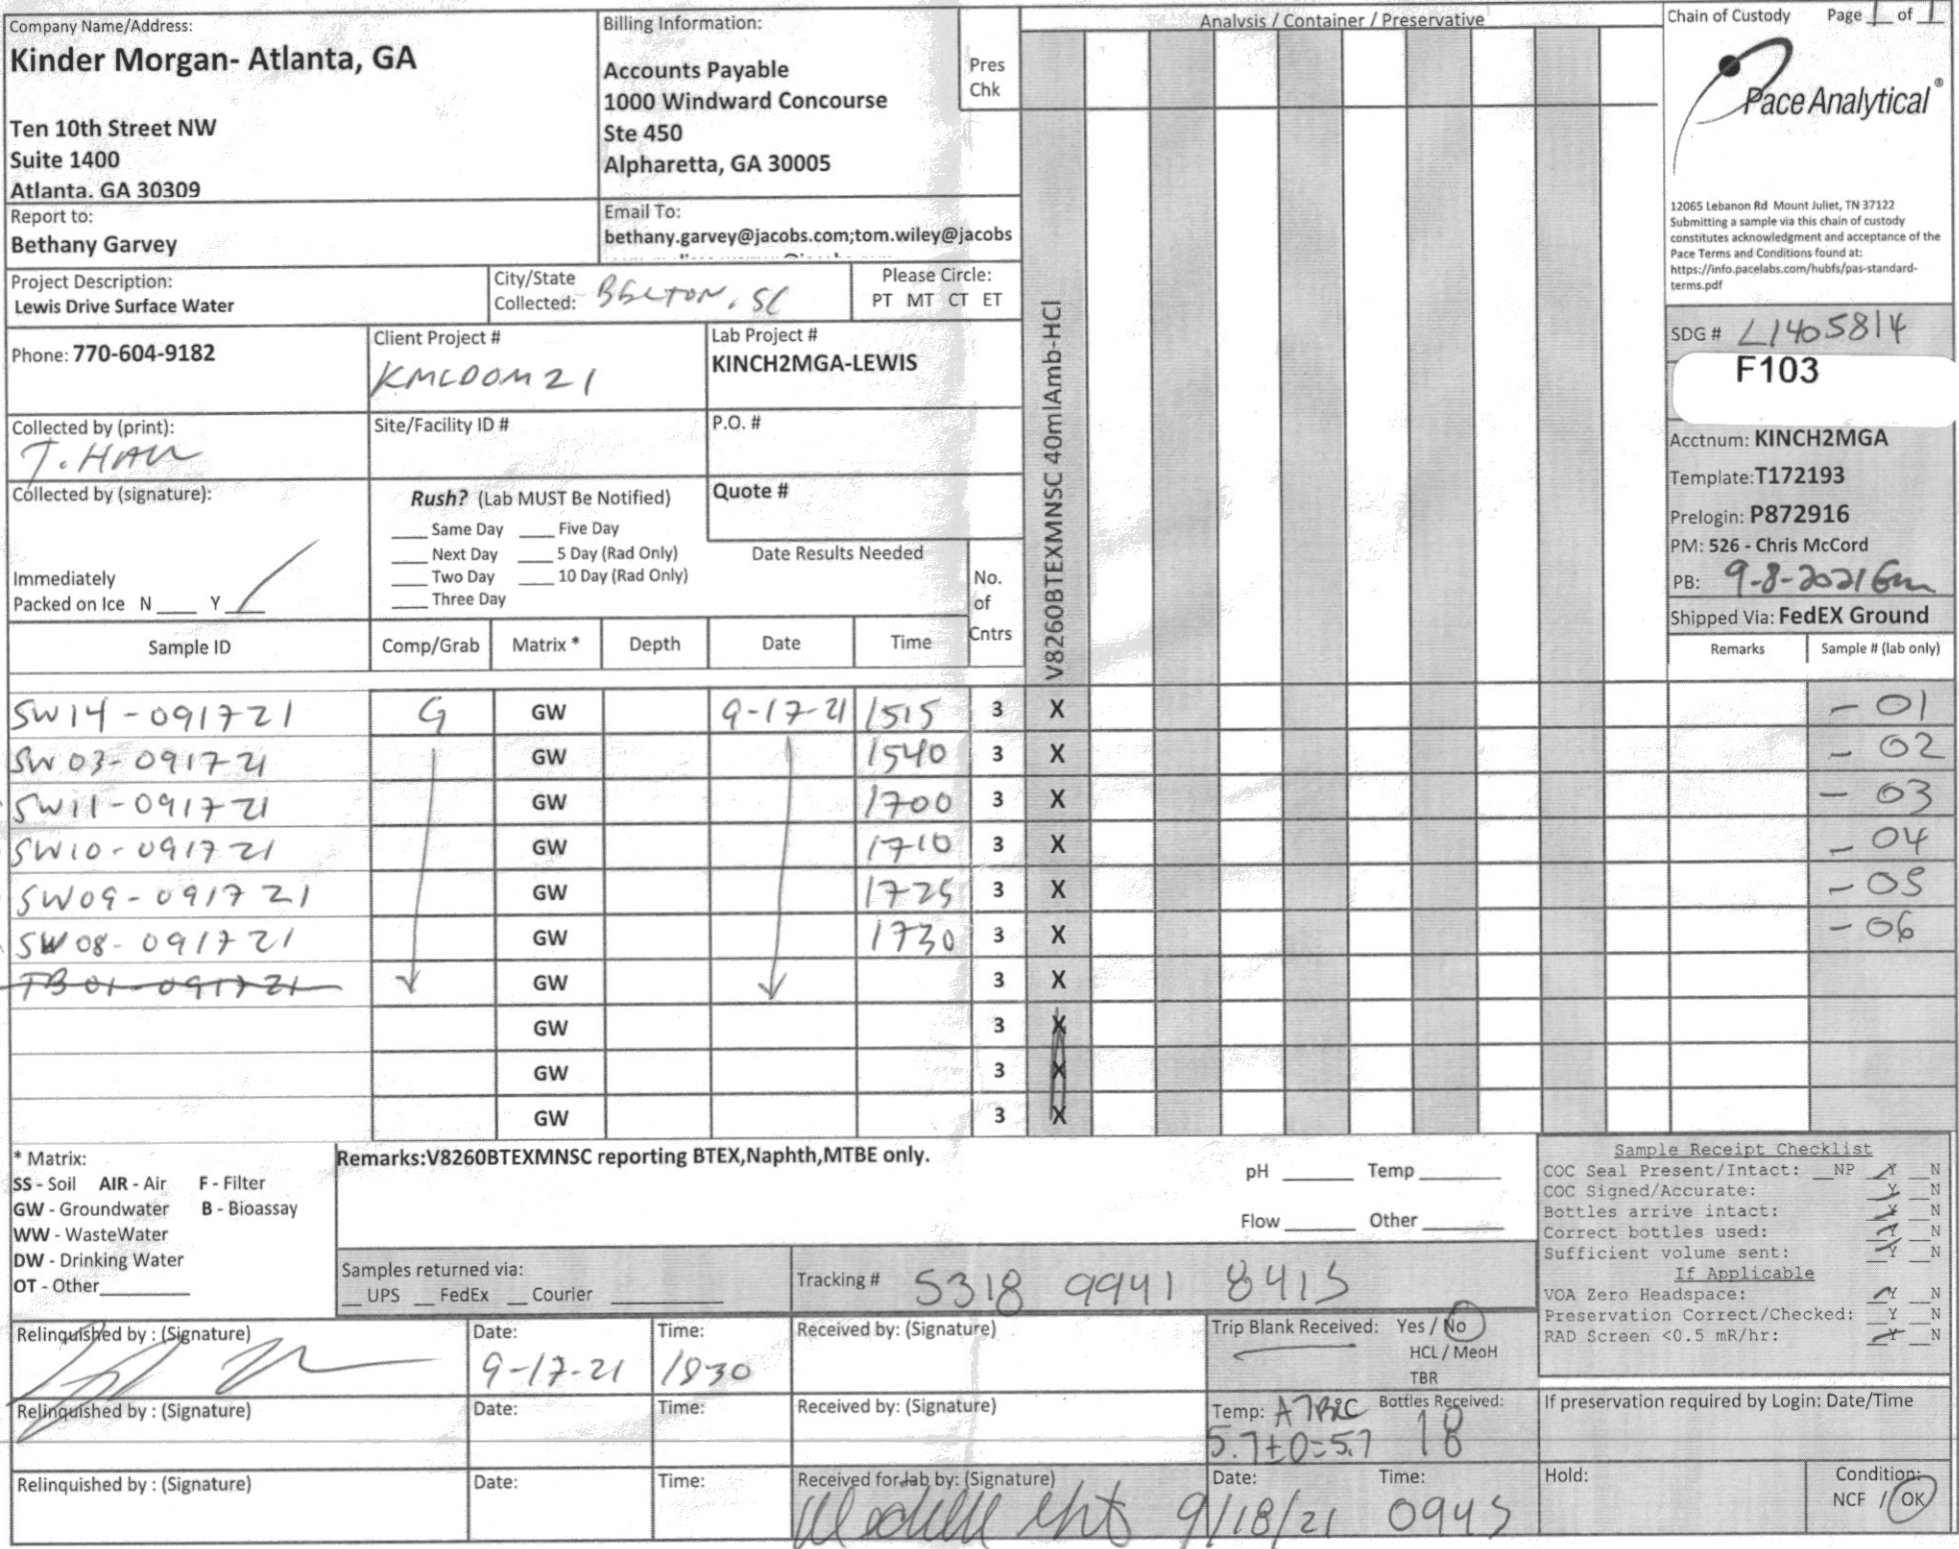 Company Name/Address:
Kinder Morgan- Atlanta, GA
Ten 10th Street NW
Suite 1400
Atlanta. GA 30309
Billing Information:
Accounts Payable
1000 Windward Concourse
Ste 450
Alpharetta, GA 30005
Pres
Chk
Analysis / Container / Preservative
Chain of Custody Page 1 of 1
Pace Analytical®
12065 Lebanon Rd Mount Juliet, TN 37122
Submitting a sample via this chain of custody
constitutes acknowledgment and acceptance of the
Pace Terms and Conditions found at:
https://info.pacelabs.com/hubfs/pas-standard-
terms.pdf
Report to:
Bethany Garvey
Email To:
bethany.garvey@jacobs.com;tom.wiley@jacobs
Project Description:
Lewis Drive Surface Water
City/State
Collected: BELTON, SC
Please Circle:
PT MT CT ET
Phone: 770-604-9182
Client Project #
KMCDOM21
Lab Project #
KINCH2MGA-LEWIS
SDG # L1405814
F103
Collected by (print):
T. HALL
Site/Facility ID #
P.O. #
Acctnum: KINCH2MGA
Template:T172193
Prelogin: P872916
PM: 526 - Chris McCord
PB: 9-8-2021
Shipped Via: FedEX Ground
Collected by (signature):
Rush? (Lab MUST Be Notified)
___ Same Day ___ Five Day
___ Next Day ___ 5 Day (Rad Only)
___ Two Day ___ 10 Day (Rad Only)
___ Three Day
Quote #
Date Results Needed
Immediately
Packed on Ice N ___ Y ___
No.
of
Cntrs
V8260BTEXMNSC 40mlAmb-HCl
Sample ID Comp/Grab Matrix * Depth Date Time Remarks Sample # (lab only)
SW14-091721 G GW 9-17-21 1515 3 X - 01
SW03-091721 GW 1540 3 X - 02
SW11-091721 GW 1700 3 X - 03
SW10-091721 GW 1710 3 X - 04
SW09-091721 GW 1725 3 X - 05
SW08-091721 GW 1730 3 X - 06
TB01-091721 GW 3 X
GW 3 X
GW 3 X
GW 3 X
* Matrix:
SS - Soil AIR - Air F - Filter
GW - Groundwater B - Bioassay
WW - WasteWater
DW - Drinking Water
OT - Other
Remarks:V8260BTEXMNSC reporting BTEX,Naphth,MTBE only.
pH ______ Temp ______
Flow ______ Other ______
Samples returned via:
__ UPS __ FedEx __ Courier ______
Tracking # 5318 9941 8415
Sample Receipt Checklist
COC Seal Present/Intact: __NP __Y __N
COC Signed/Accurate: __Y __N
Bottles arrive intact: __Y __N
Correct bottles used: __Y __N
Sufficient volume sent: __Y __N
If Applicable
VOA Zero Headspace: __Y __N
Preservation Correct/Checked: __Y __N
RAD Screen <0.5 mR/hr: __Y __N
Relinquished by : (Signature)
Date:
9-17-21
Time:
1830
Received by: (Signature)
Trip Blank Received: Yes / No
HCL / MeoH
TBR
Relinquished by : (Signature)
Date:
Time:
Received by: (Signature)
Temp: °C Bottles Received:
5.7±0=5.7 18
If preservation required by Login: Date/Time
Relinquished by : (Signature)
Date:
Time:
Received for lab by: (Signature)
Date: 9/18/21
Time: 0945
Hold:
Condition:
NCF / OK